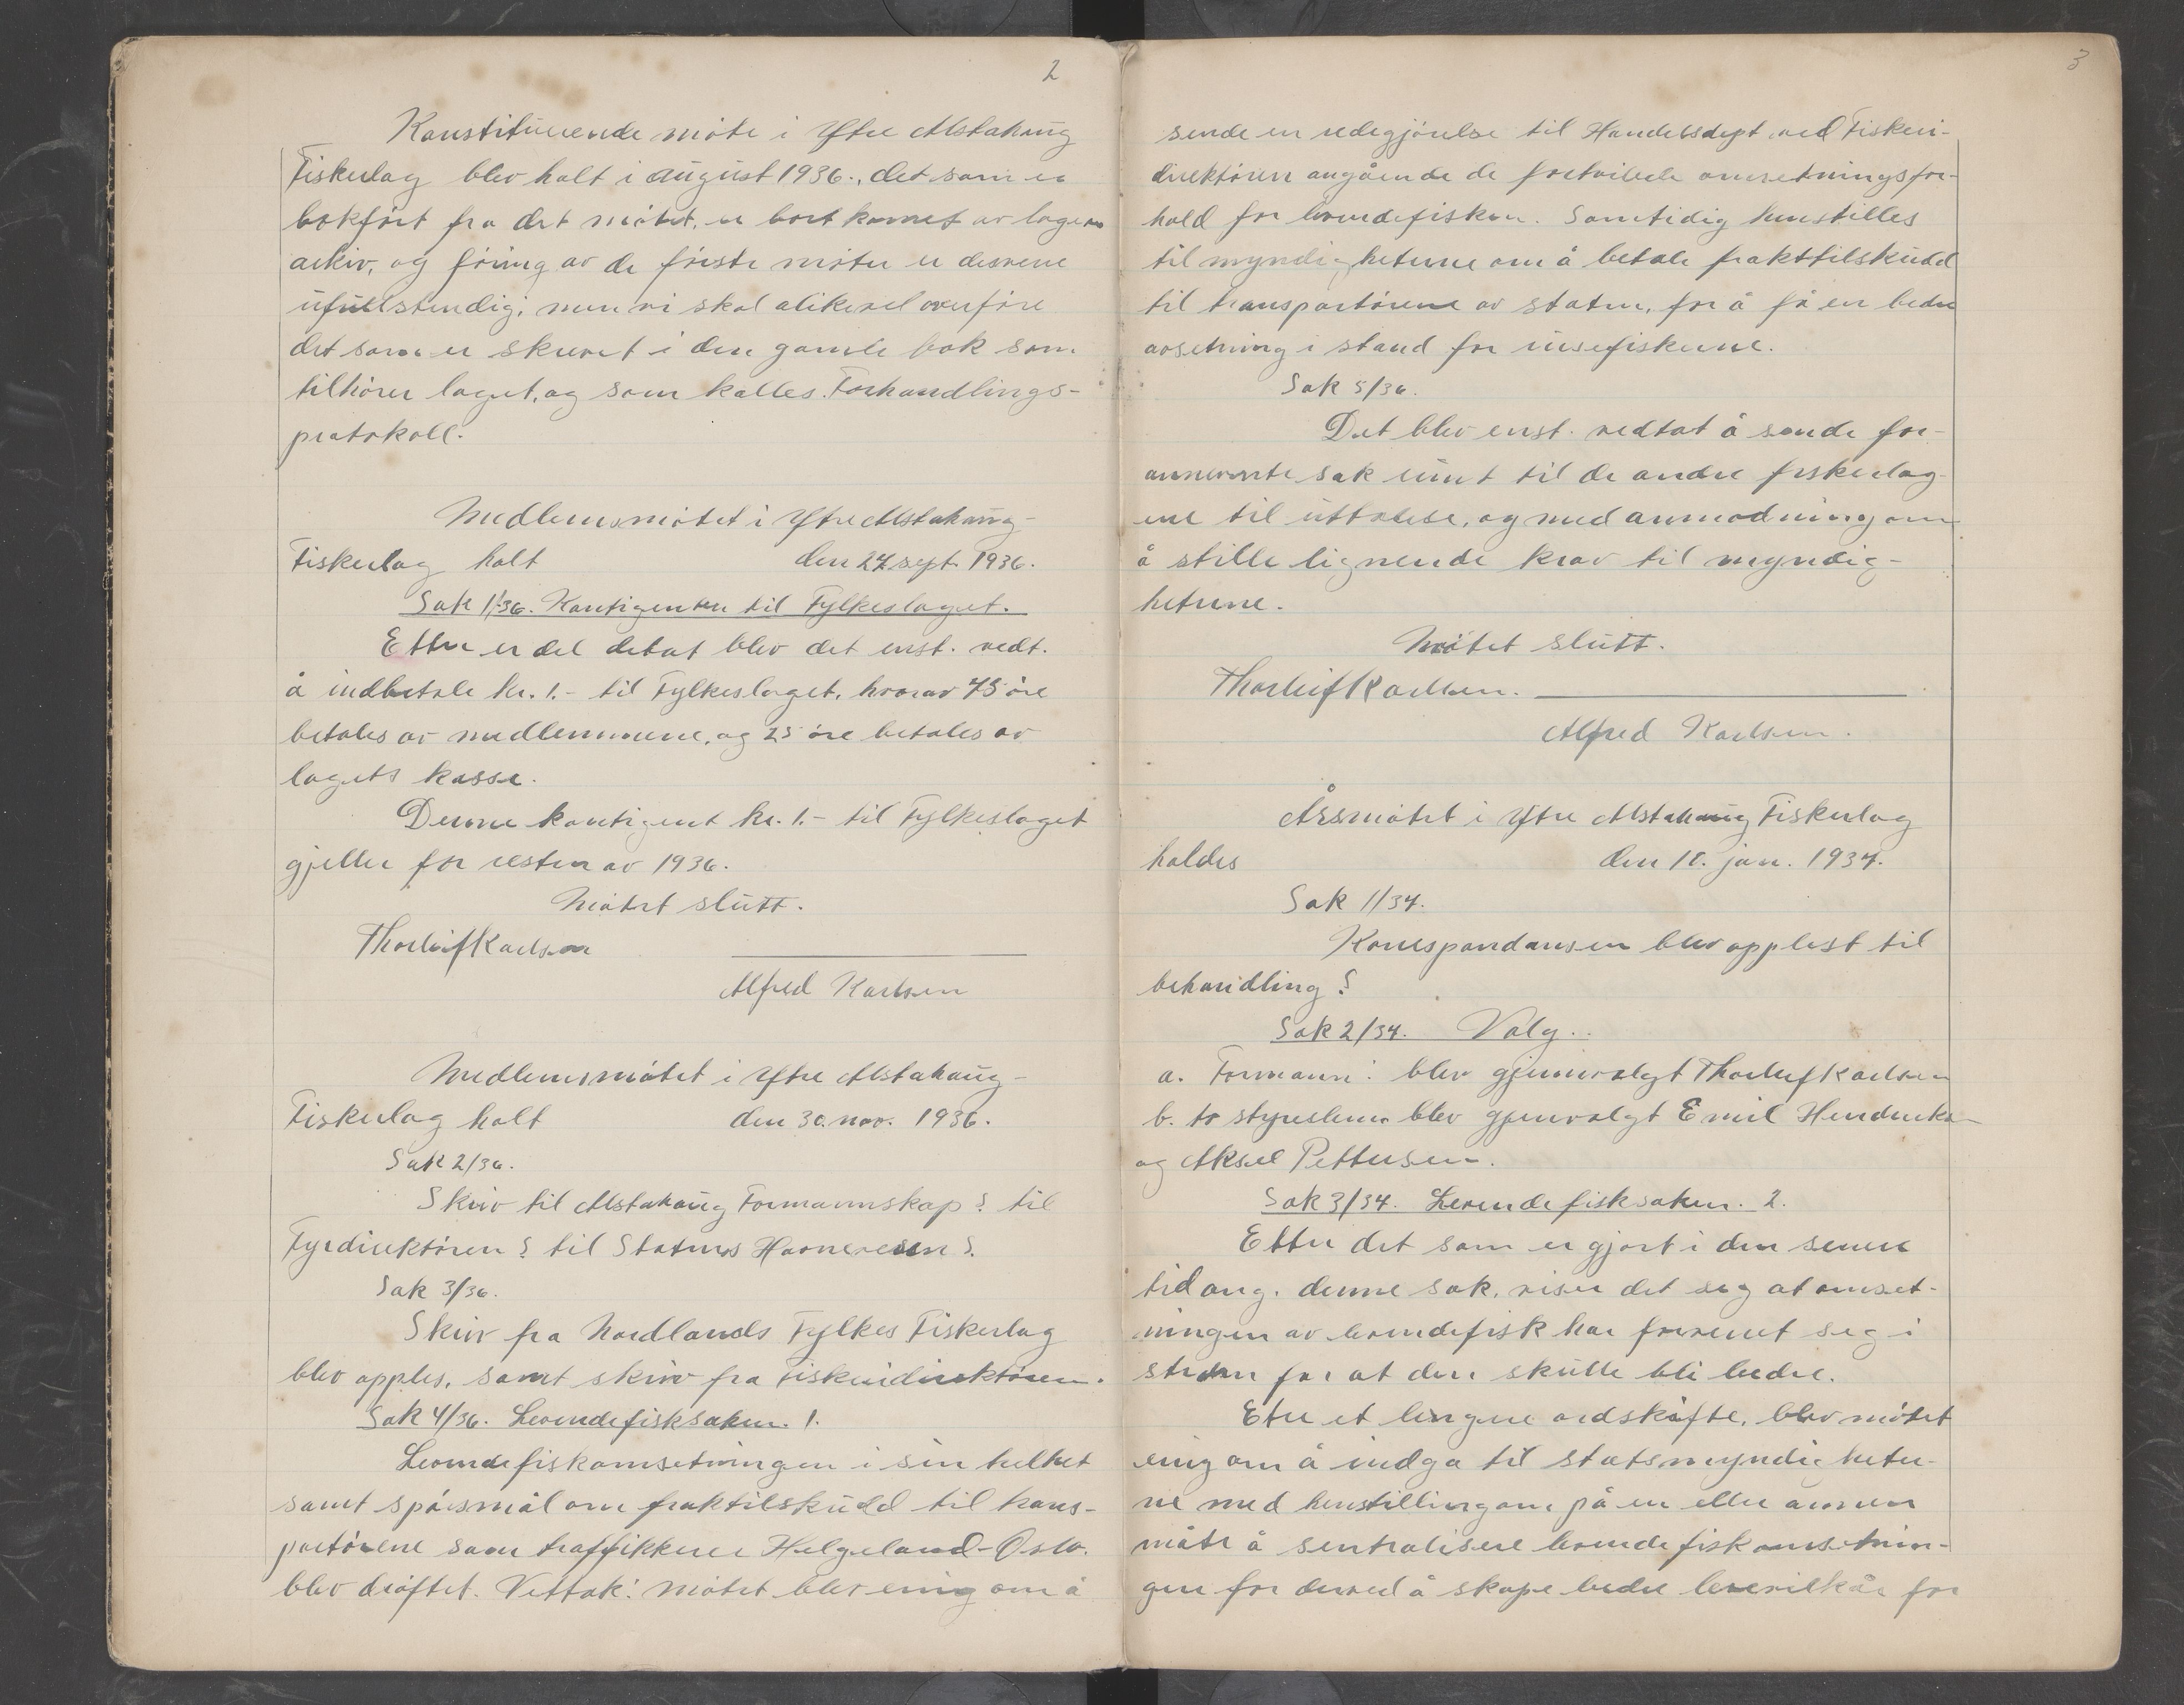 2
Konstituerende møte i Ytre Alstahaug
Fiskerlag blev holt i august 1936., det som er
bokført fra det møtet, er bort kommet av lagets
arkiv, og føring av de første møter er desverre
ufullstendig; men vi skal alikevel overføre
det som er skrevet i den gamle bok som
tilhører laget, og som kalles. Forhandlings-
protokoll.
Medlemsmøtet i Ytre Alstahaug-
Fiskerlag holt den 27 sept. 1936.
Sak 1/36. Kontigenten til Fylkeslaget.
Etter en del debat blev det enst. vedt.
å indbetale kr. 1.- til Fylkeslaget, hvorav 75 øre
betales av medlemmene, og 25 øre betales av
lagets kasse.
Denne kontigent kr. 1.- til Fylkeslaget
gjeller for resten av 1936.
Møtet slutt.
Thorleif Karlsen
Alfred Karlsen
Medlemsmøtet i Ytre Alstahaug-
Fiskerlag holt den 30. nov. 1936.
Sak 2/36.
Skriv til Alstahaug Formannskap? til
Fyrdirektøren? til Statens Havnevesen?.
Sak 3/36.
Skriv fra Nordlands Fylkes Fiskerlag
blev opples, samt skriv fra Fiskeridirektøren.
Sak 4/36. Levendefisksaken. 1.
Levendefiskomsetningen i sin helhet
samt spørsmål om fraktilskudd til trans-
portørene som traffikkerer Helgeland-Oslo.
blev drøftet. Vettak: møtet blev enig om å
3
sende en redegjørelse til Handelsdept. ved Fiskeri-
direktøren angående de fortvilede omsetningsfor-
hold for levendefisken. Samtidig henstilles
til myndighetene om å betale frakttilskudd
til transportørene av staten, for å få en bedre
avsetning i stand for rusefiskerne.
Sak 5/36.
Det blev enst. vedtat å sende for-
annevnte sak runt til de andre fiskerlag-
ene til uttalelse, og med anmodning om
å stille lignende krav til myndig-
hetene.
Møtet slutt.
Thorleif Karlsen.
Alfred Karlsen.
Årsmøtet i Ytre Alstahaug Fiskerlag
holdes den 10. jan. 1937.
Sak 1/37.
Korrespondansen blev opplest til
behandling?
Sak 2/37. Valg..
a. Formann: blev gjennvalgt Thorleif Karlsen
b. to styreslem. blev gjenvalgt Emil Hendriks-
og Aksel Pettersen.
Sak 3/37. Levendefisksaken. 2.
Etter det som er gjort i den senere
tid ang. denne sak, viser det seg at omset-
ningen av levendefisk har forverret seg i
steden for at den skulle bli bedre.
Eter et lengere ordskifte, blev møtet
enig om å indgå til statsmyndigheter-
ne med henstilling om på en eller annen
måte å sentralisere levendefiskomsetnin-
gen for derved å skape bedre levevilkår for